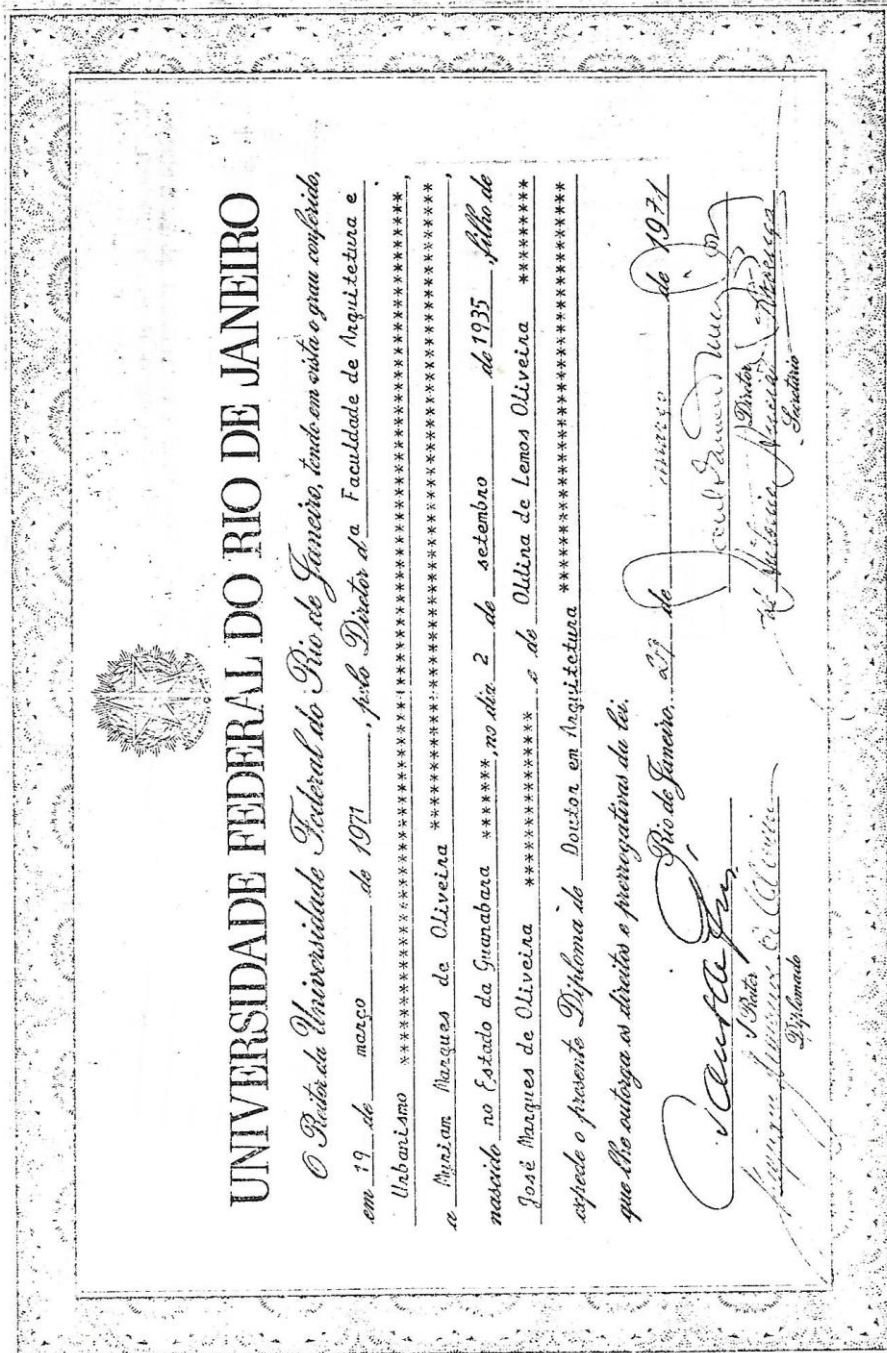 UNIVERSIDADE FEDERAL DO RIO DE JANEIRO
O Reitor da Universidade Federal do Rio de Janeiro, tendo em vista o grau conferido,
em 19 de março de 1971, pelo Diretor da Faculdade de Arquitetura e
Urbanismo ****************************************************************,
a Myriam Marques de Oliveira ************************************************,
nascido no Estado da Guanabara *******, no dia 2 de setembro de 1935, filho de
José Marques de Oliveira **************** e de Oldina de Lemos Oliveira *********
expede o presente Diploma de Doutor em Arquitetura *****************************
que lhe outorga os direitos e prerrogativas da lei.
Rio de Janeiro, de março de 1971
Reitor
Diretor
Diplomado
Secretário